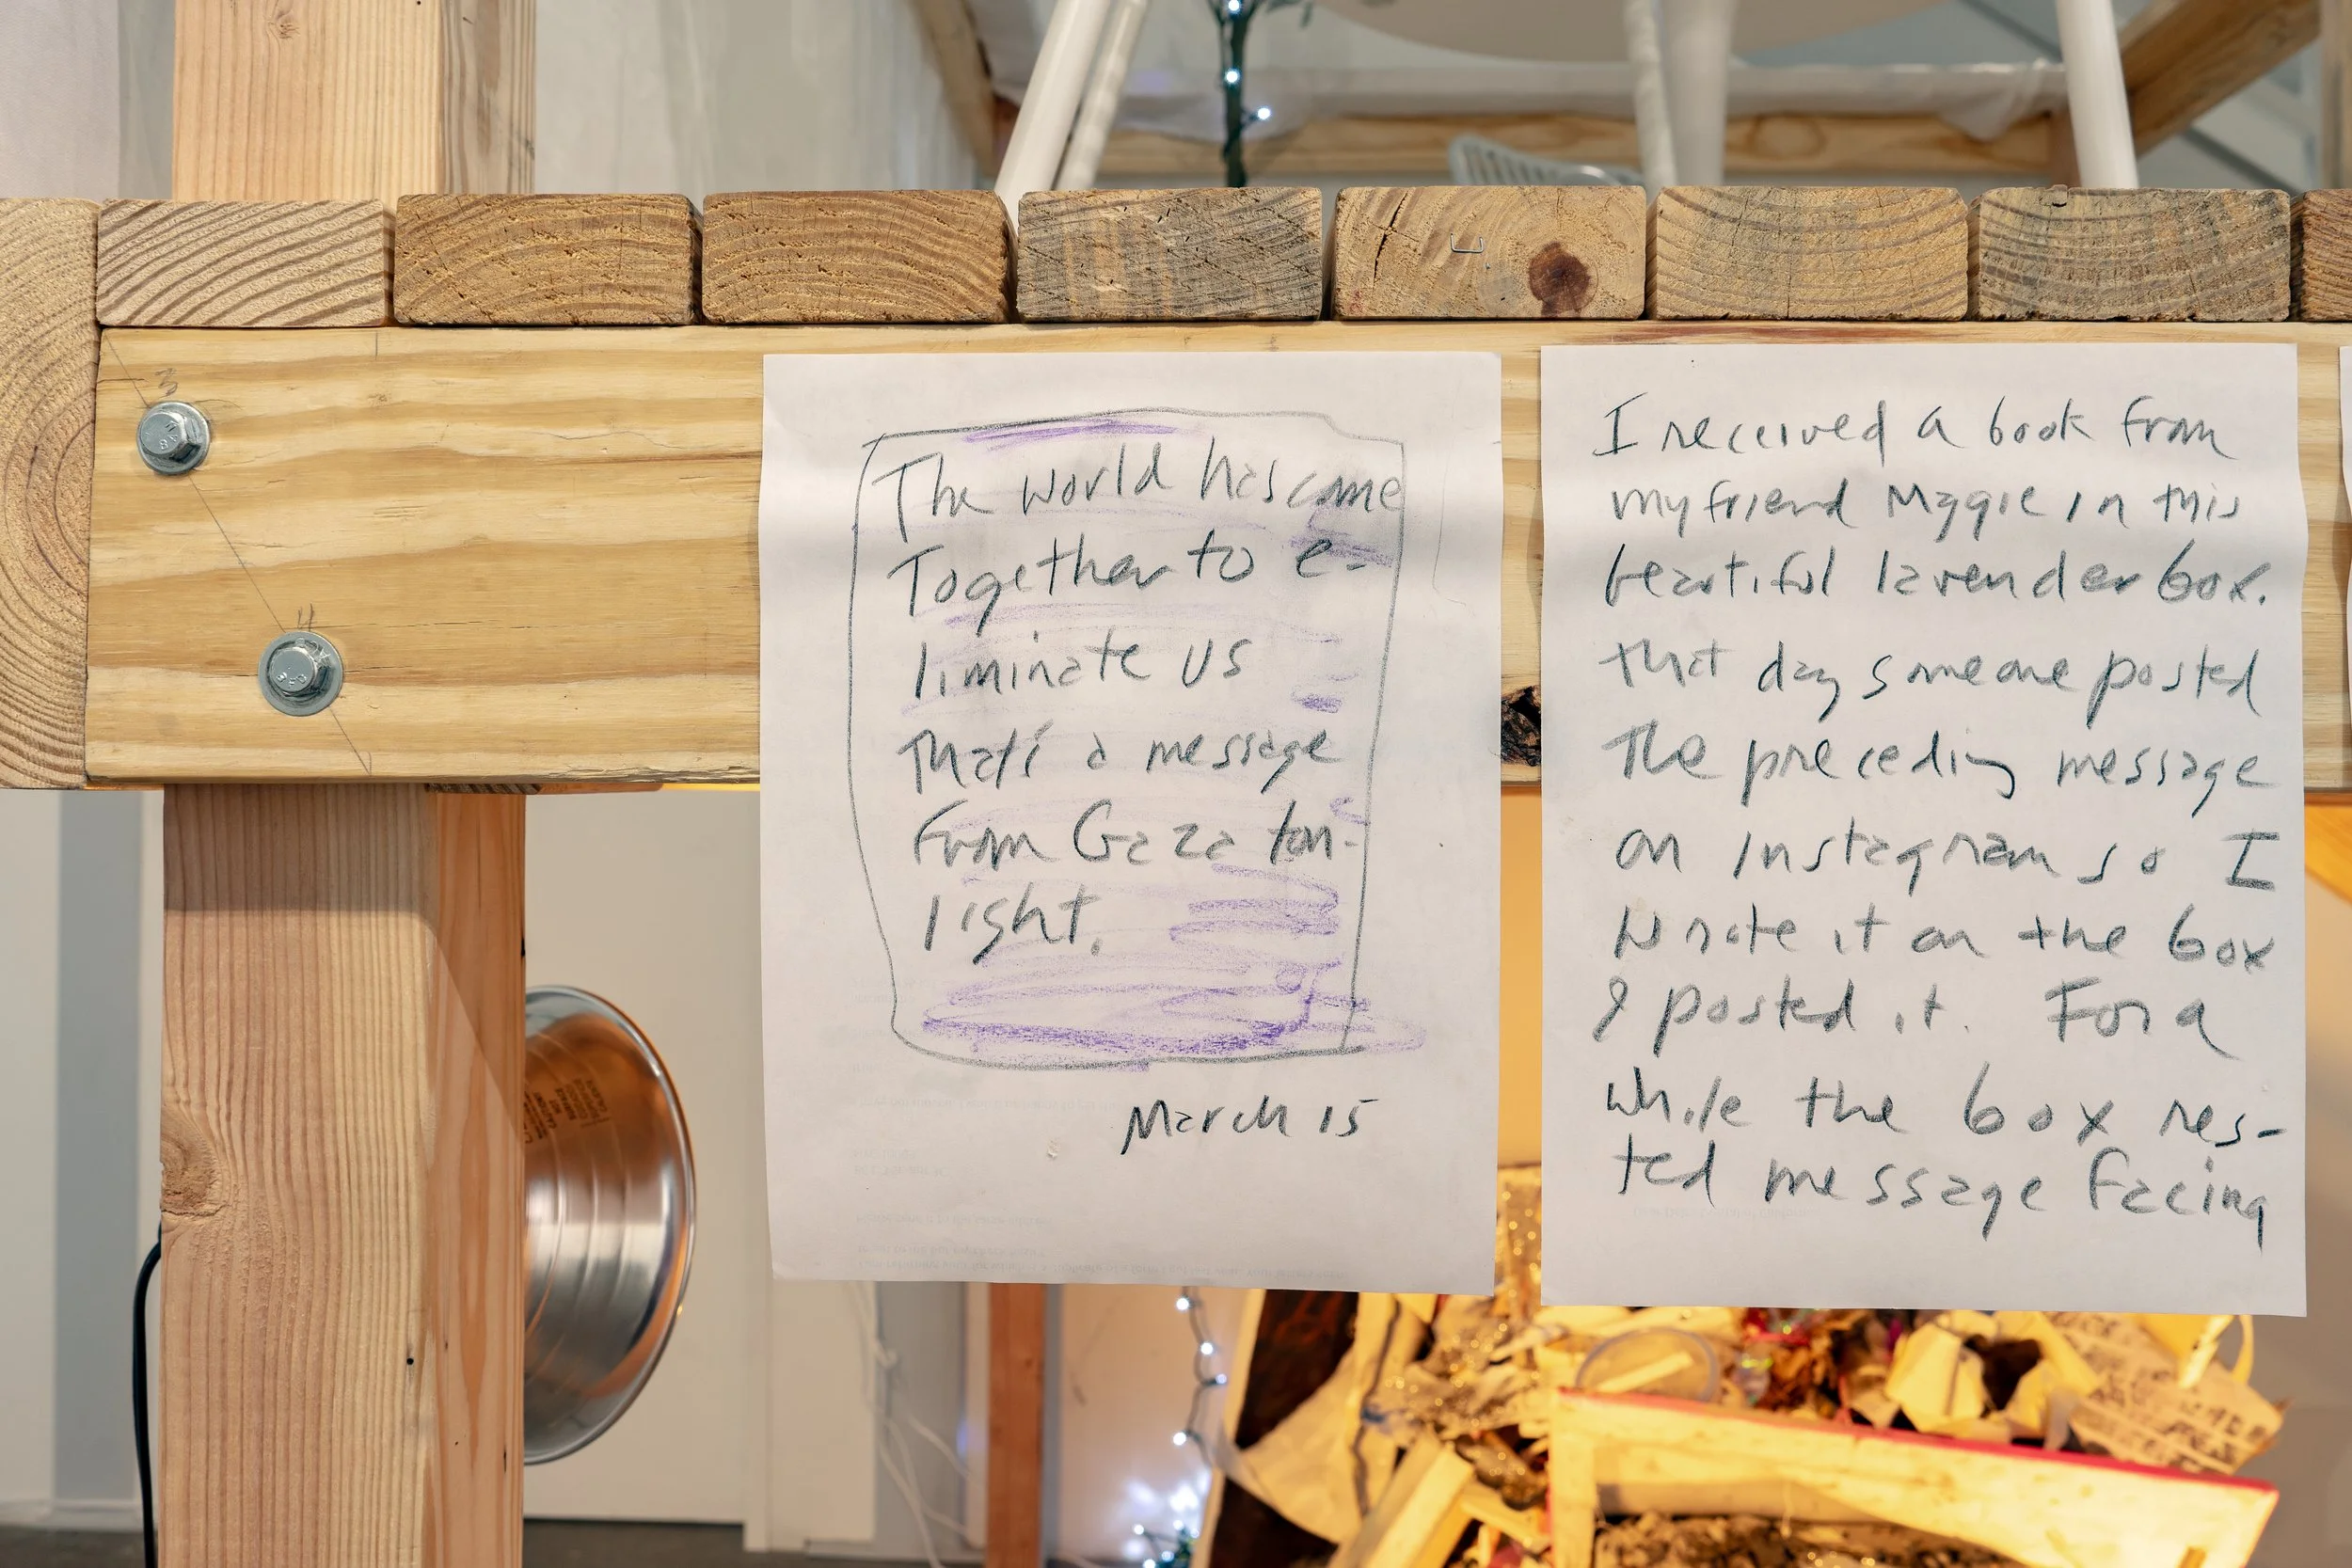 The world has come
Together to e-
liminate us
That's a message
From Gaza ton-
light.
March 15
I received a book from
my friend Maggie in this
beautiful lavender box.
That day someone posted
The preceding message
on Instagram so I
wrote it on the box
& posted it. For a
while the box res-
ted message facing
3
4